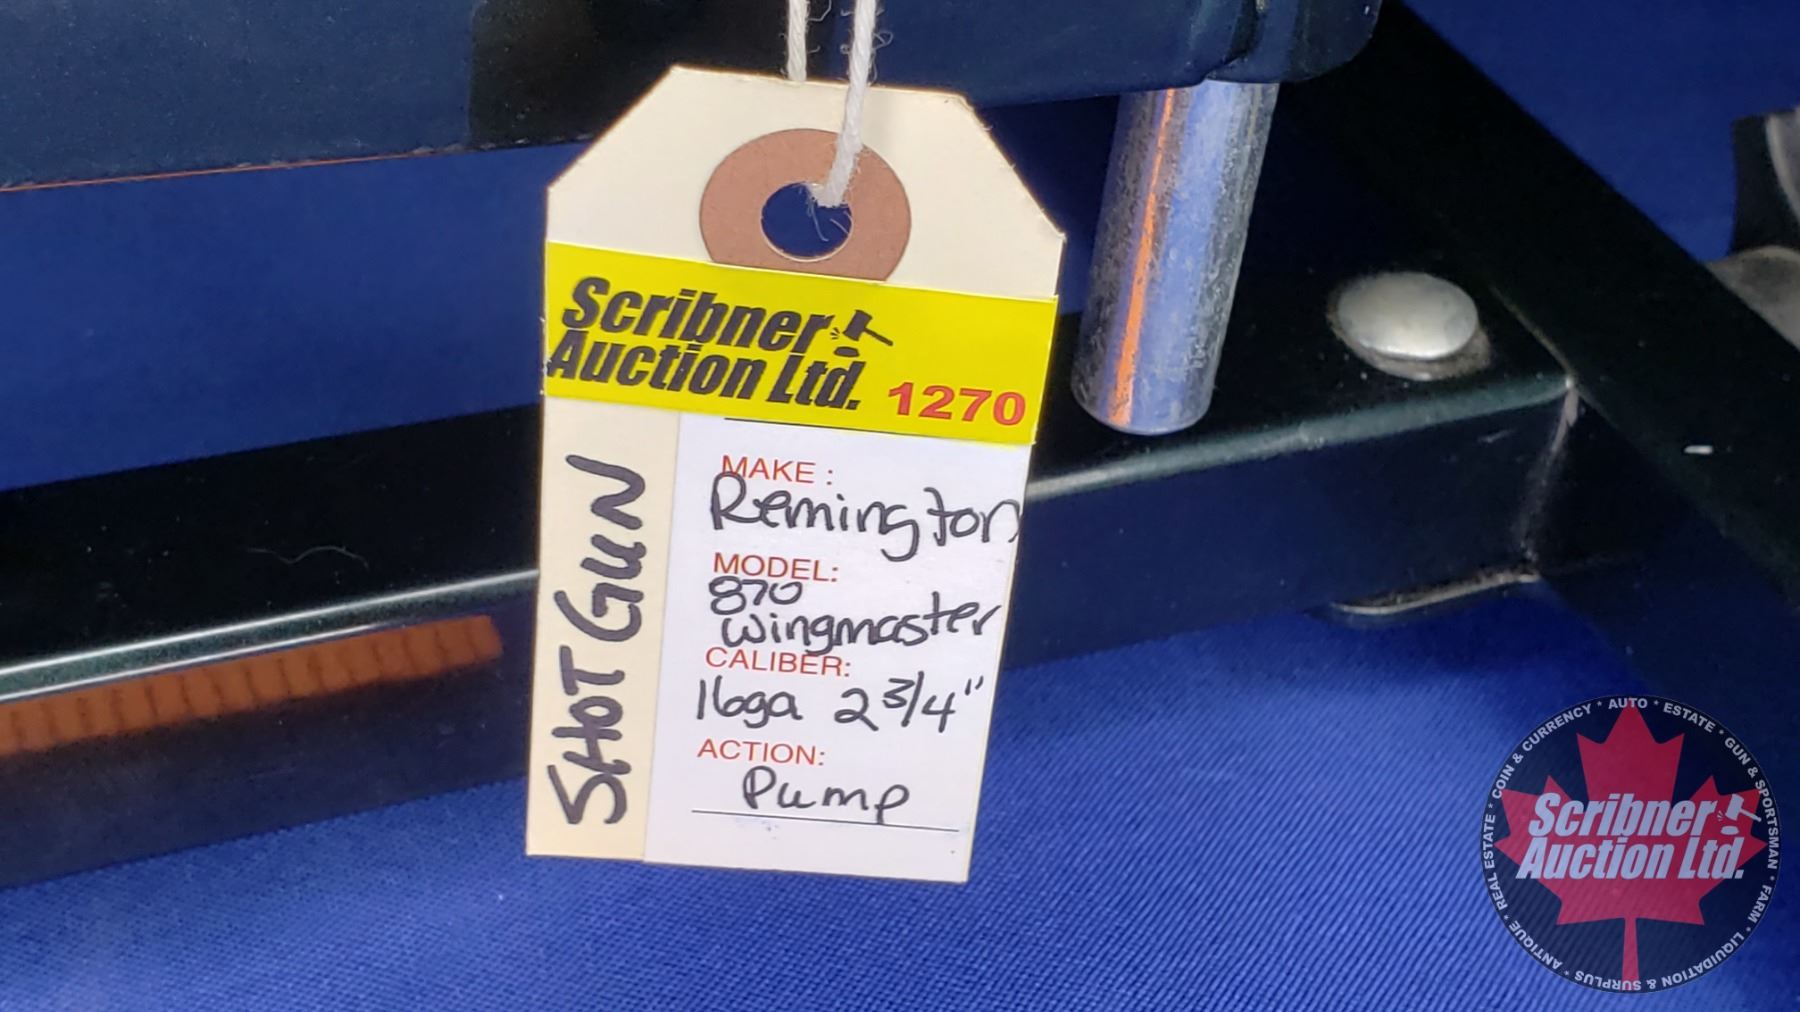 Scribner
Auction Ltd.
1270
SHOT GUN
MAKE:
Remington
MODEL:
870
Wingmaster
CALIBER:
16ga 2 3/4"
ACTION:
Pump
Scribner
Auction Ltd.
ANTIQUE * REAL ESTATE * COIN & CURRENCY * AUTO * ESTATE * GUN & SPORTSMAN * FARM * LIQUIDATION & SURPLUS *